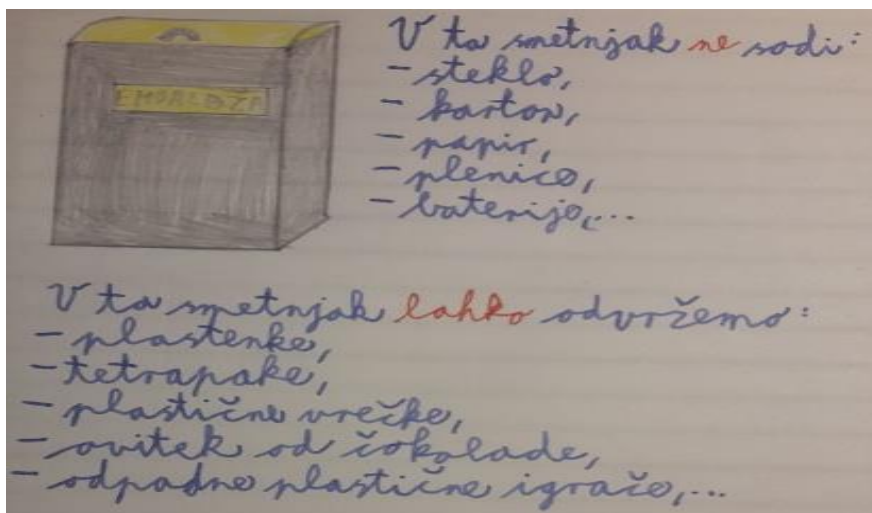 EMBALAŽA
V ta smetnjak ne sodi:
- steklo,
- karton,
- papir,
- plenice,
- baterije,...
V ta smetnjak lahko odvržemo:
- plastenke,
- tetrapake,
- plastične vrečke,
- ovitek od čokolade,
- odpadne plastične igrače,...